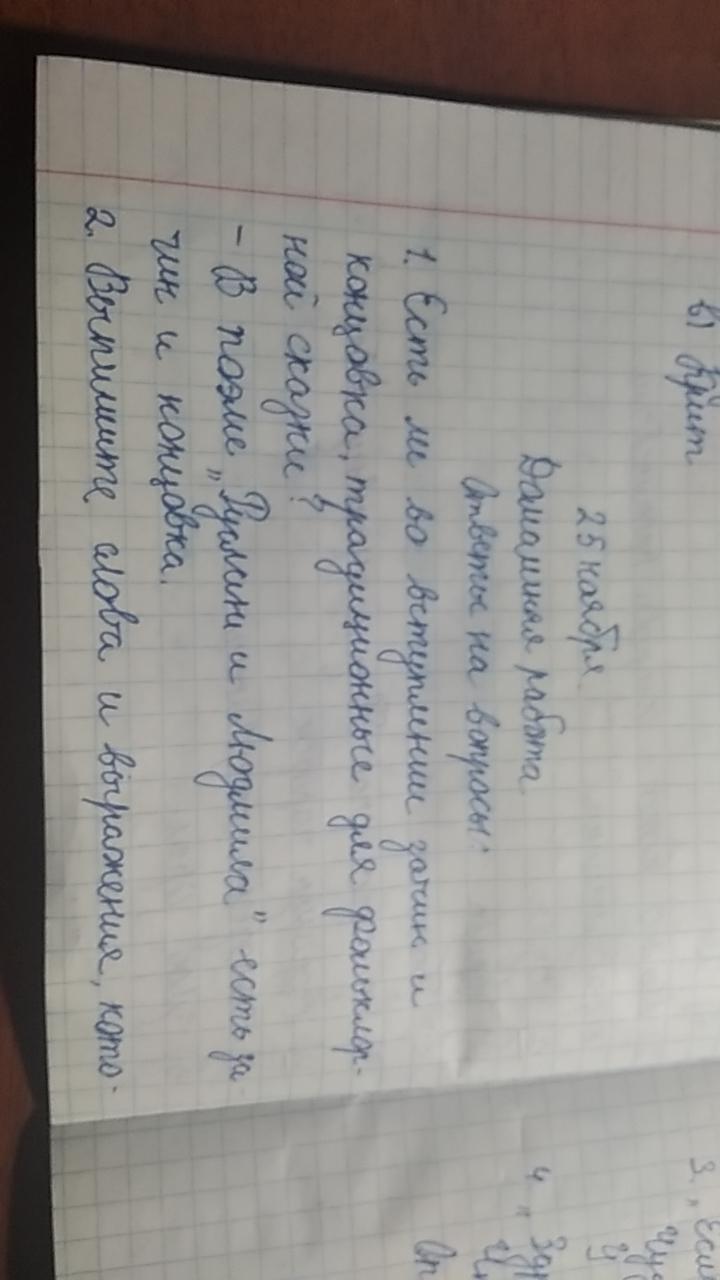 в) Крит
25 ноября.
Домашняя работа
Ответы на вопросы:
1. Есть ли во вступлении зачин и
концовка, традиционные для фольклор-
ной сказки?
- В поэме „Руслан и Людмила" есть за-
чин и концовка.
2. Выпишите слова и выражения, кото-
3. „ Если
4 „